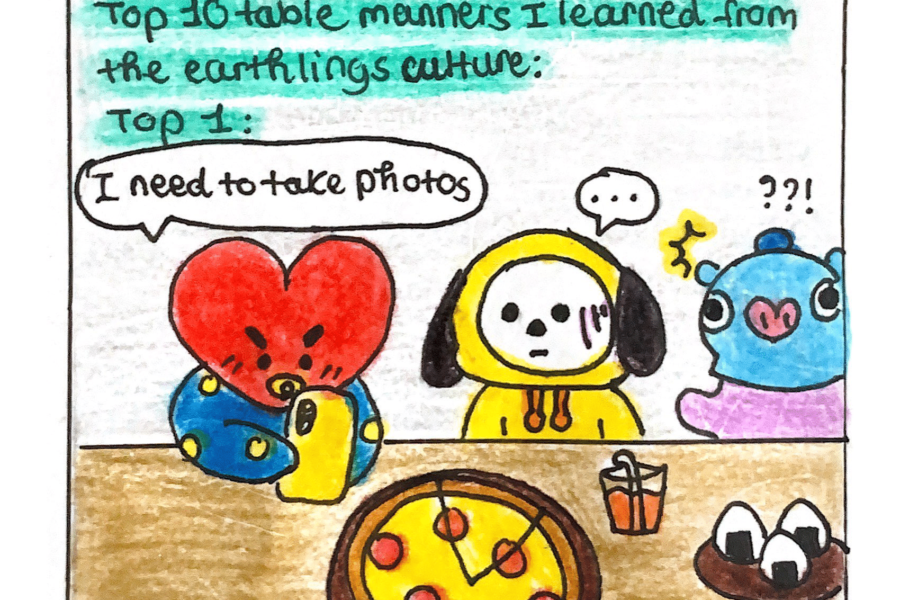 Top 10 table manners I learned from
the earthlings culture:
Top 1:
I need to take photos
...
??!